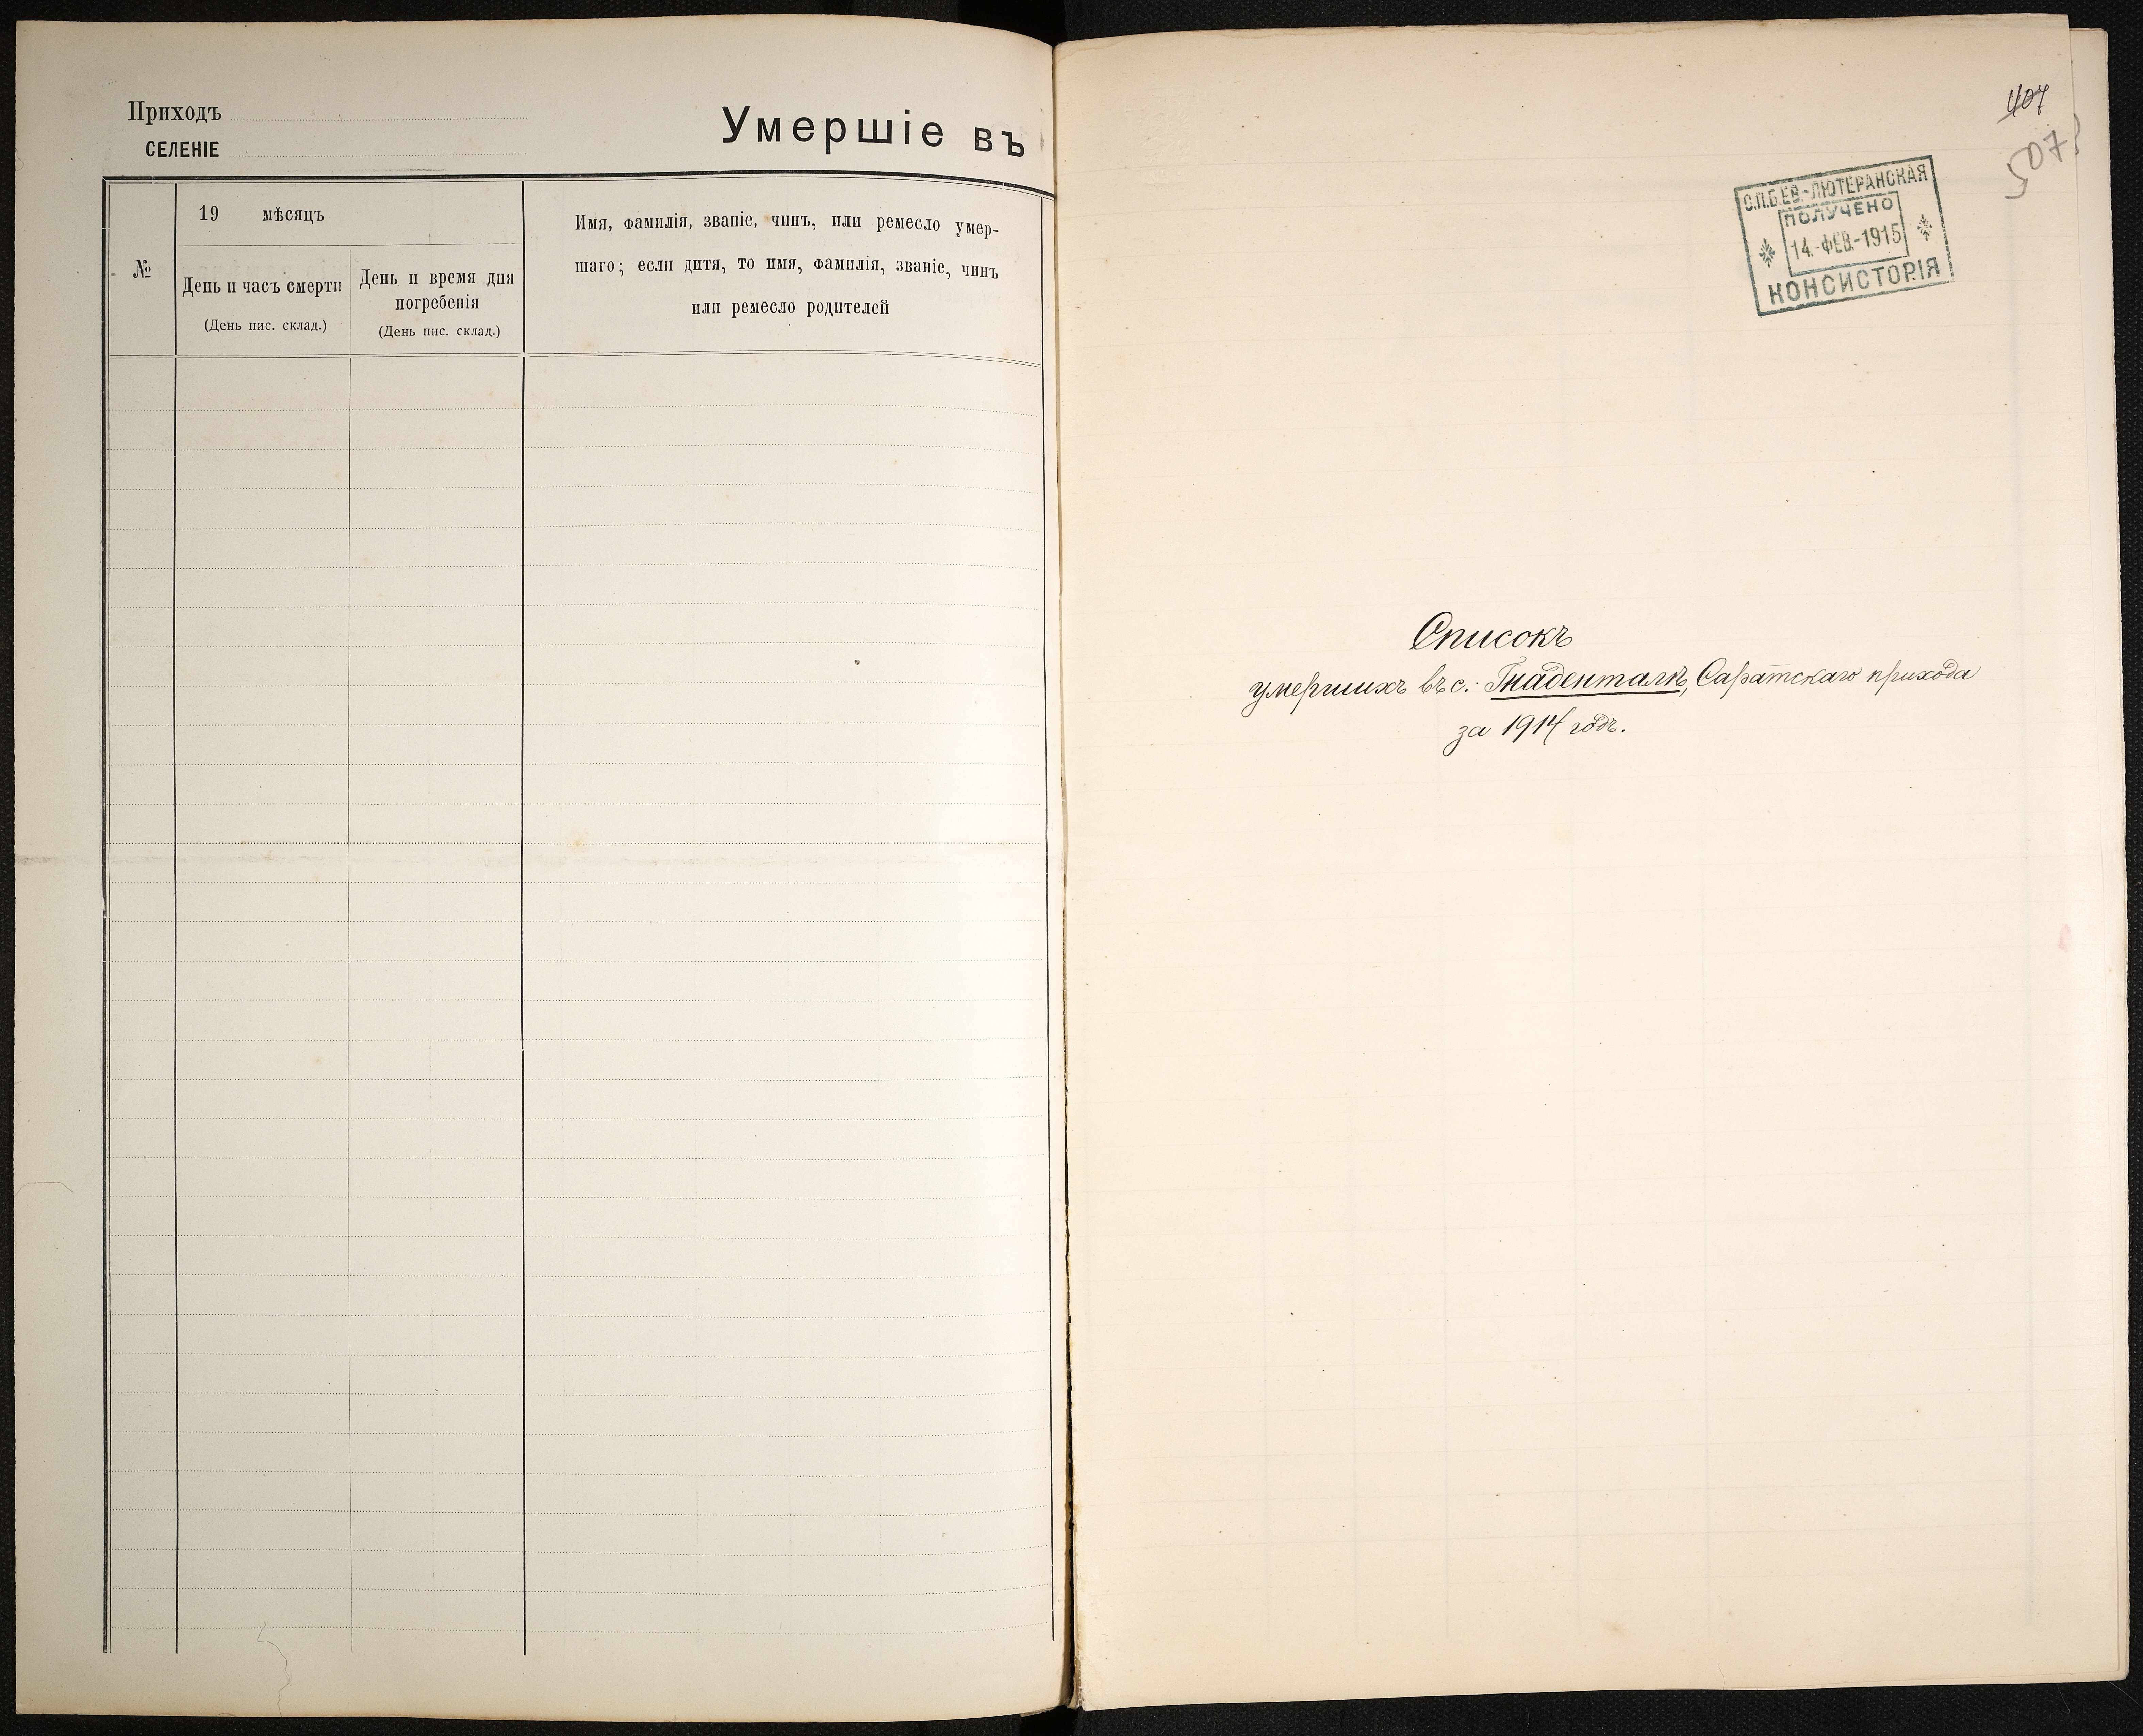 Приходъ
СЕЛЕНІЕ
Умершіе въ
№
19 мѣсяцъ
День и часъ смерти
(День пис. склад.)
День и время дня
погребенія
(День пис. склад.)
Имя, фамилія, званіе, чинъ, или ремесло умер-
шаго; если дитя, то имя, фамилія, званіе, чинъ
или ремесло родителей
407
507
С.П.Б. ЕВ.-ЛЮТЕРАНСКАЯ
ПОЛУЧЕНО
14.-ФЕВ.-1915
КОНСИСТОРІЯ
Списокъ
умершихъ въ с.: Гнаденталѣ, Саратскаго прихода
за 1914 годъ.